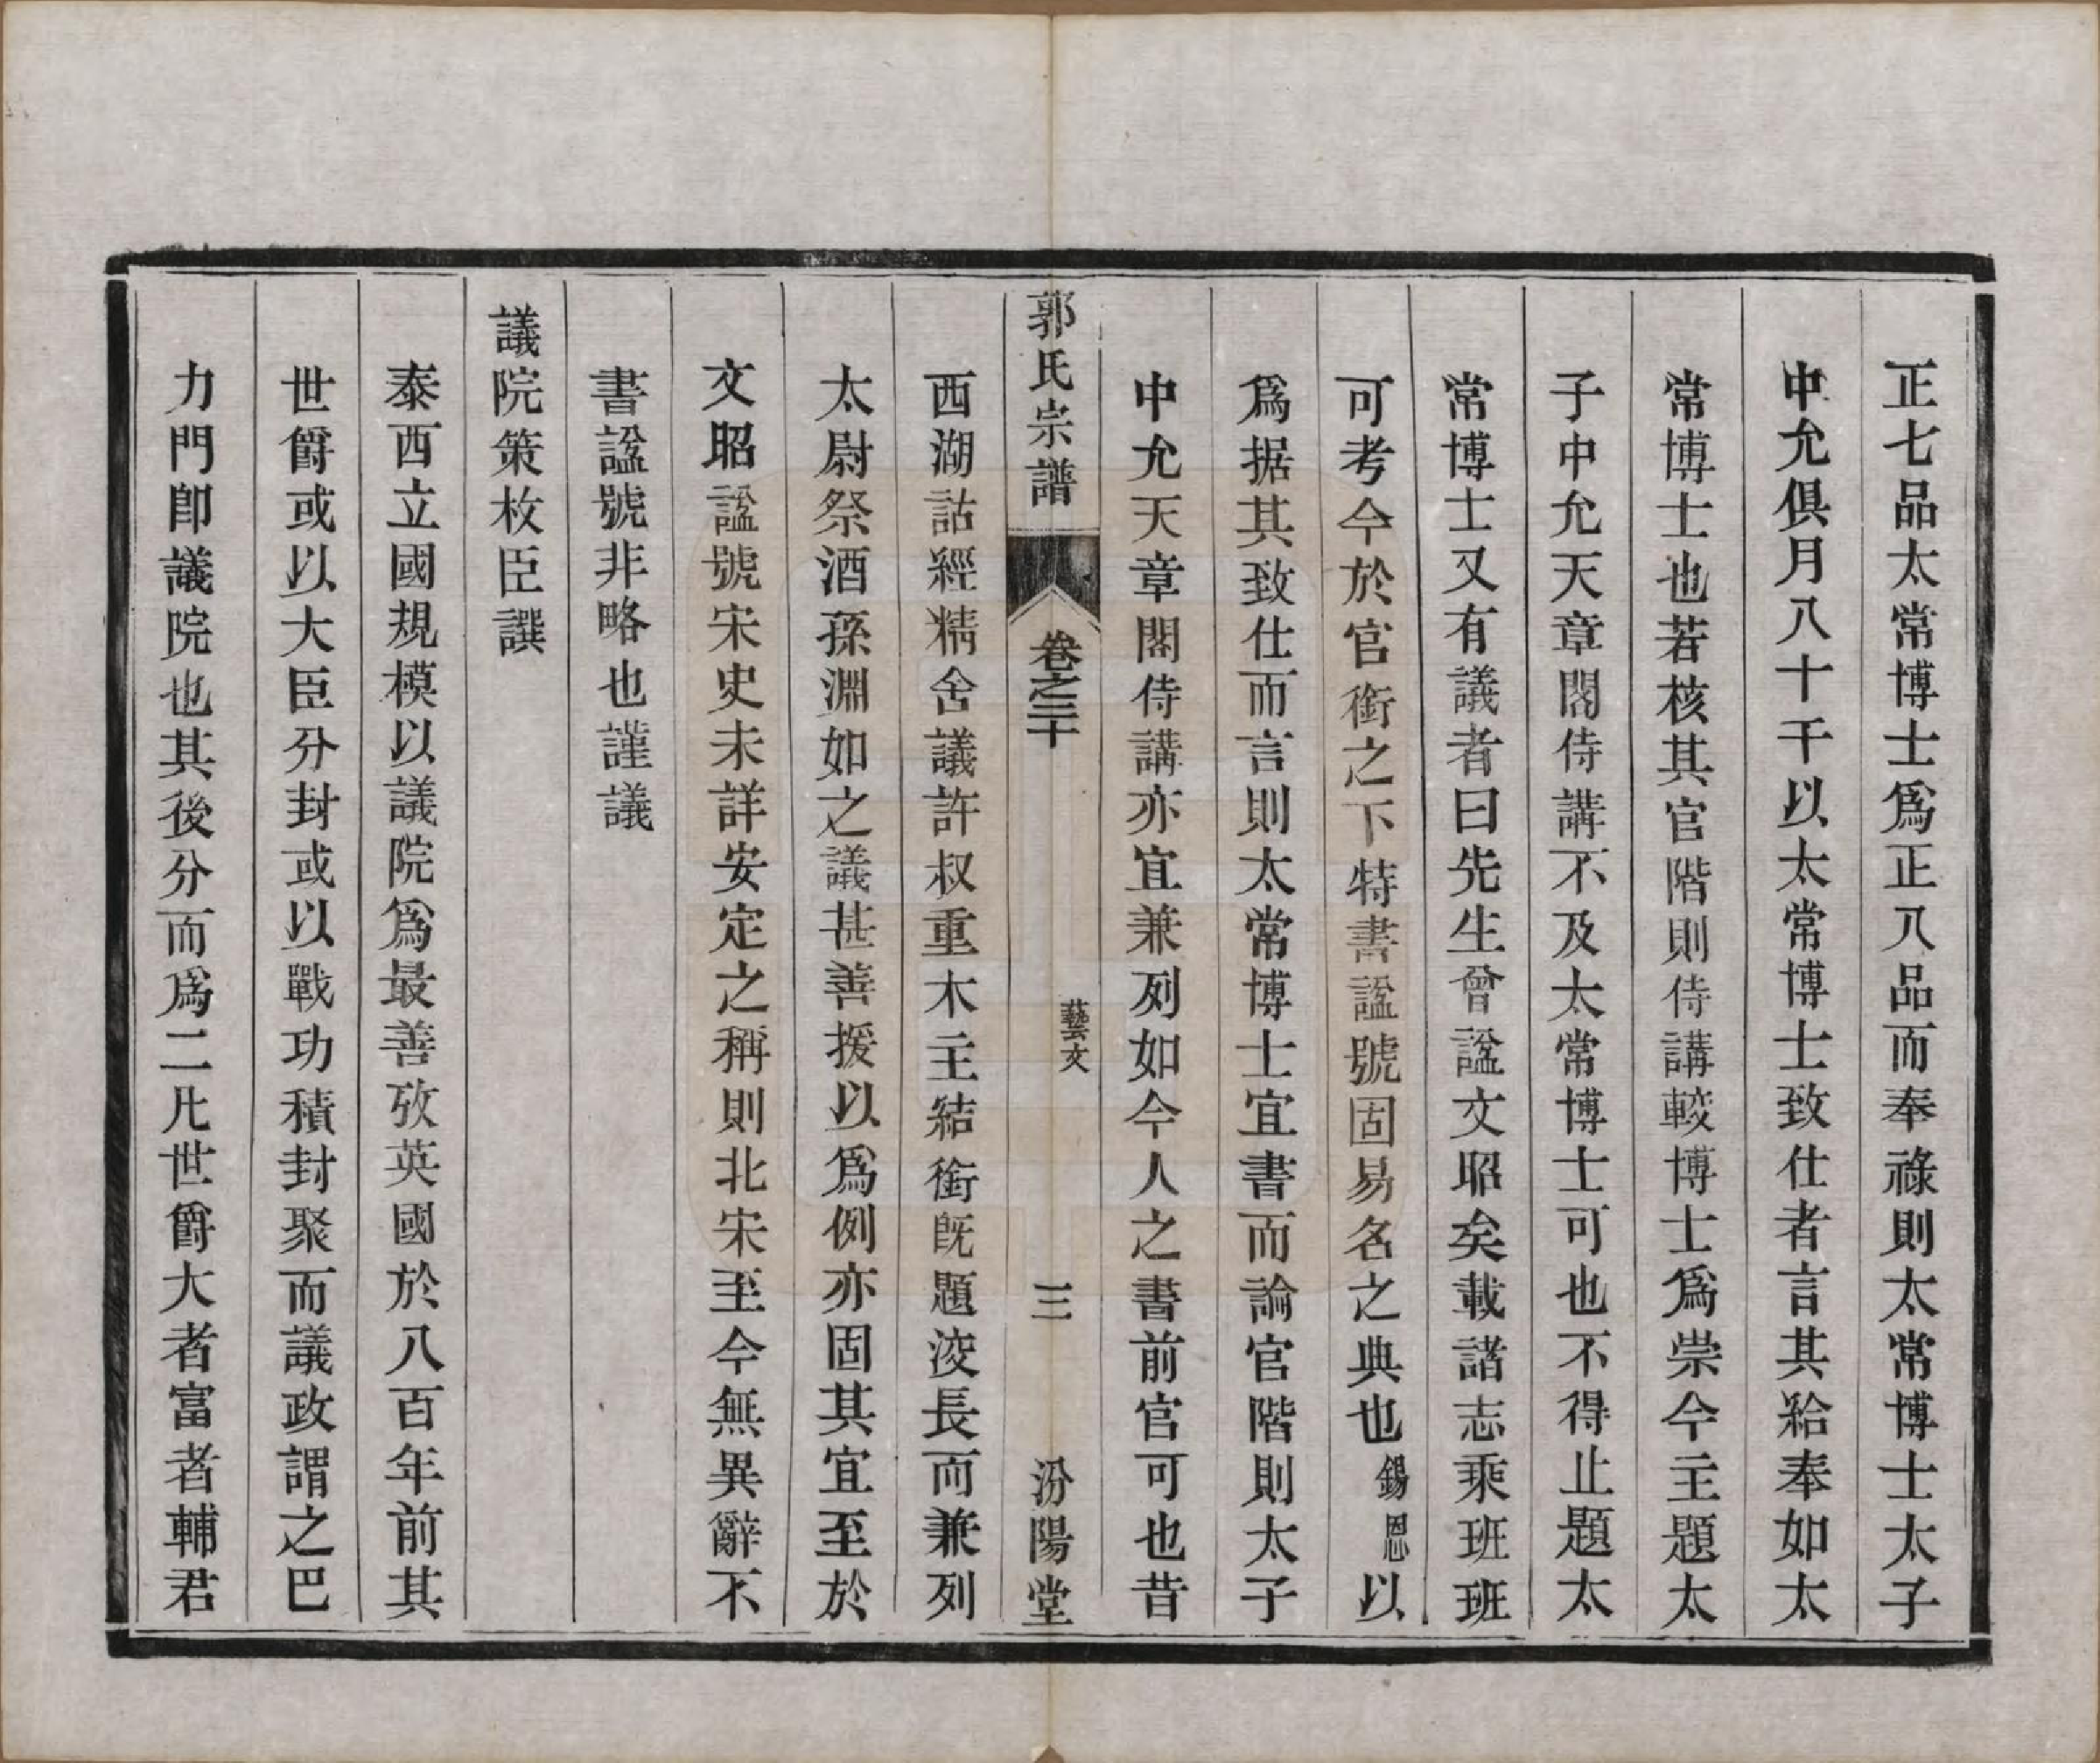 正七品太常博士爲正八品而奉祿則太常博士太子
中允俱月八十千以太常博士致仕者言其給奉如太
常博士也若核其官階則侍講較博士爲崇今主題太
子中允天章閣侍講不及太常博士可也不得止題太
常博士又有議者曰先生曾諡文昭矣載諸志乘班班
可考今於官銜之下特書諡號固易名之典也錫恩以
爲据其致仕而言則太常博士宜書而論官階則太子
中允天章閣侍講亦宜兼列如今人之書前官可也昔
郭氏宗譜 卷之三十 藝文 三 汾陽堂
西湖詁經精舍議許叔重木主結銜旣題洨長而兼列
太尉祭酒孫淵如之議甚善援以爲例亦固其宜至於
文昭諡號宋史未詳安定之稱則北宋至今無異辭不
書諡號非略也謹議
議院策枚臣譔
泰西立國規模以議院爲最善攷英國於八百年前其
世爵或以大臣分封或以戰功積封聚而議政謂之巴
力門卽議院也其後分而爲二凡世爵大者富者輔君